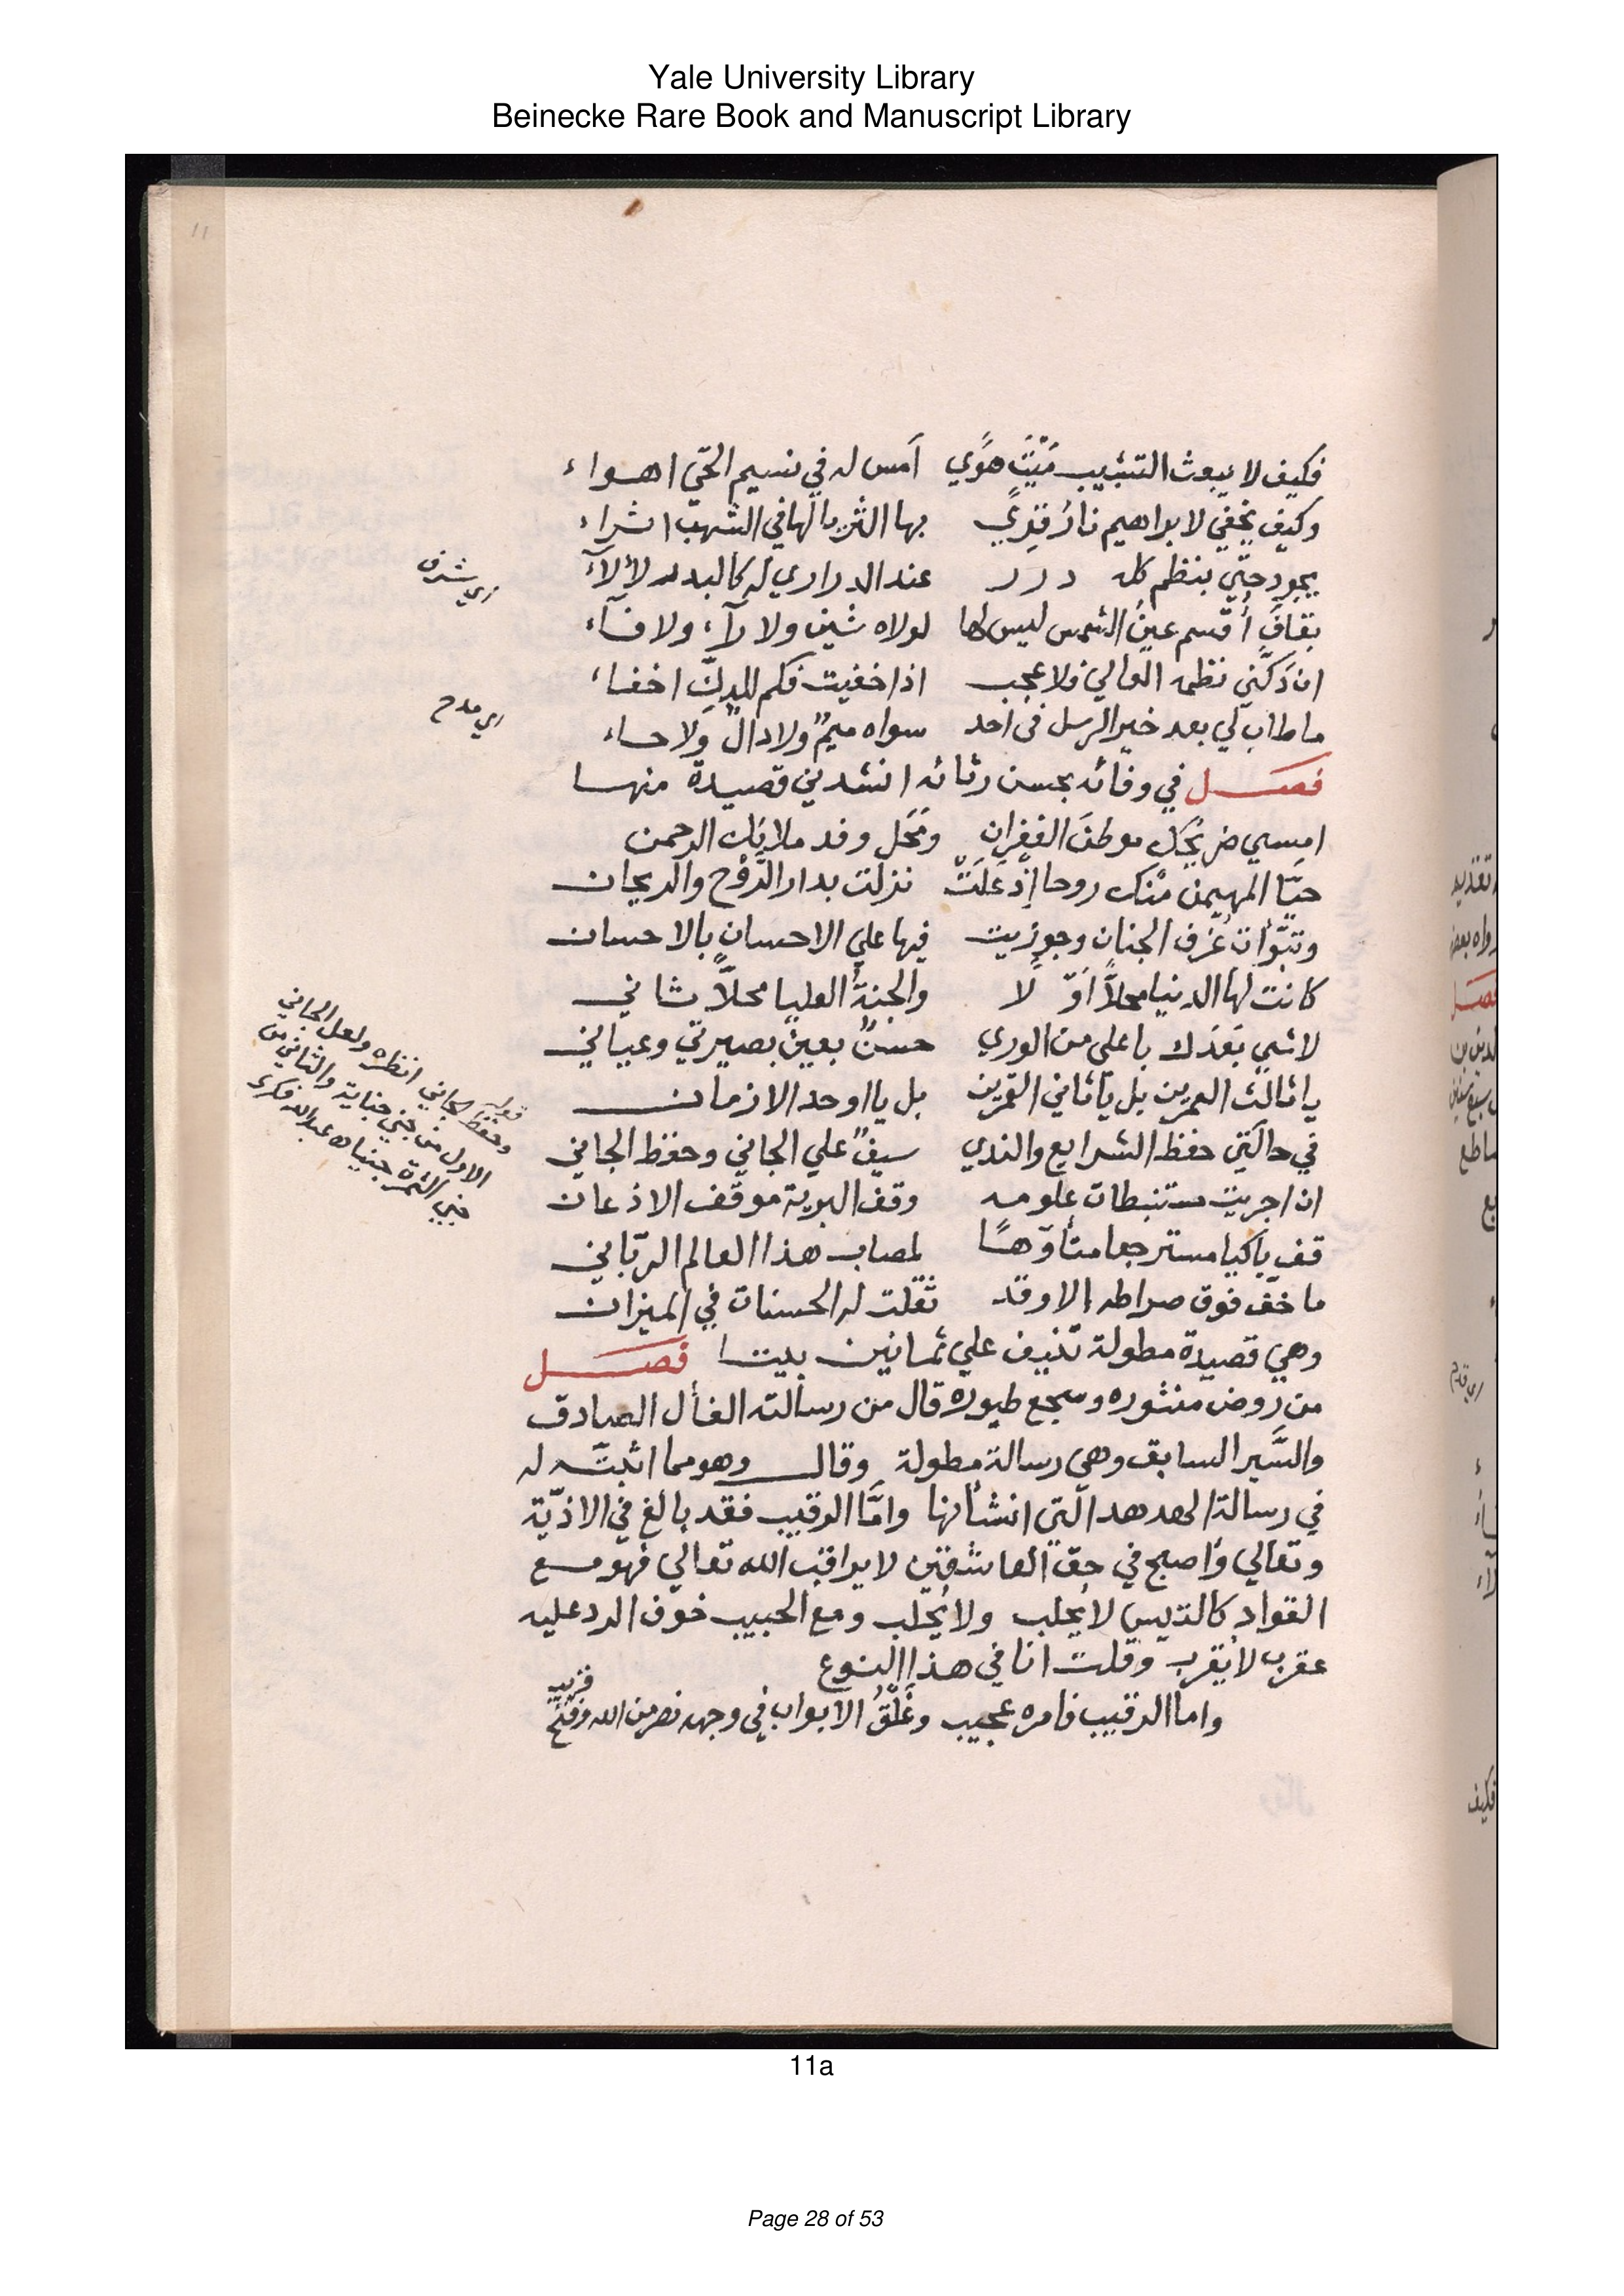 Yale University Library
Beinecke Rare Book and Manuscript Library
11
فكيف لا يبعث التشبيب مَيْتَ هوًي امس له في نسيم الحيّ اهواء
وكيف تخفي لابراهيم نارُ قِرًي بها الثريا لها في الشهب اثراء
يجود حتّي بنظم كله درر عند الدراري له كالبدر لألآء
بقافٍ أُقسم عينُ الشمس ليس لها لولاه شين ولا رآء ولا فآء
اي شرف
ان دَكَّني نظمه الغالي فلا عجب اذا خفيت فكم للدكِّ اخفاء
ما طاب لي بعد خير الرسل في احد سواه ميمٌ ولا دالٌ ولا حاء
اي مدح
فصل في وفائه بحسن رثائه انشدني قصيدة منها
امسي ضريحك موطنَ الغفران ومَحَل وفد ملايك الرحمن
حيّا المهيمن منك روحا إذْ عَلَتْ نزلت بدار الرَّوْح والريحان
وتبوّأت غُرَف الجنان وجوزيت فيها علي الاحسان بالاحسان
كانت لها الدنيا محلاًّ اوّلا والجنةُ العليا محلاًّ ثاني
لا شي بَعْدَك يا علي من الوري حسنٌ بعين بصيرتي وعياني
يا ثالث العمرين بل يا ثاني القمرين بل يا اوحد الازمان
في حالَتَي حفظ الشرايع والندي سيفٌ علي الجاني وحفظ الجاني
قوله وحفظ الجاني انظره ولعل الجاني
الاول من جني جناية والثاني من
جني الثمرة جنيا اه عبدالله فكري
ان اجريت مستنبطات علومه وقف البرية موقف الاذعان
قف باكيا مسترجعا متأوّهًا لمصاب هذا العالم الربّاني
ما خفّ فوق صراطه الا وقد ثقلت له الحسنات في الميزان
وهي قصيدة مطولة تنيف علي ثمانين بيتا فصل
من روض منثوره وسجع طيوره قال من رسالته الفأل الصادق
والسَّير السابق وهي رسالة مطولة وقال وهو مما اثبتّه له
في رسالة الهدهد الّتي انشأتها وامّا الرقيب فقد بالغ في الاذيّة
وتغالي واصبح في حق العاشقين لا يراقب الله تعالي فهو مع
القواد كالتيس لا يحلب ولا يُجلب ومع الحبيب خوف الرد عليه
عقرب لا يُقرب وقلت انا في هذا النوع
واما الرقيب فامره عجيب وغَلْقُ الابواب في وجهه نصر من الله وفتح قريب
11a
Page 28 of 53